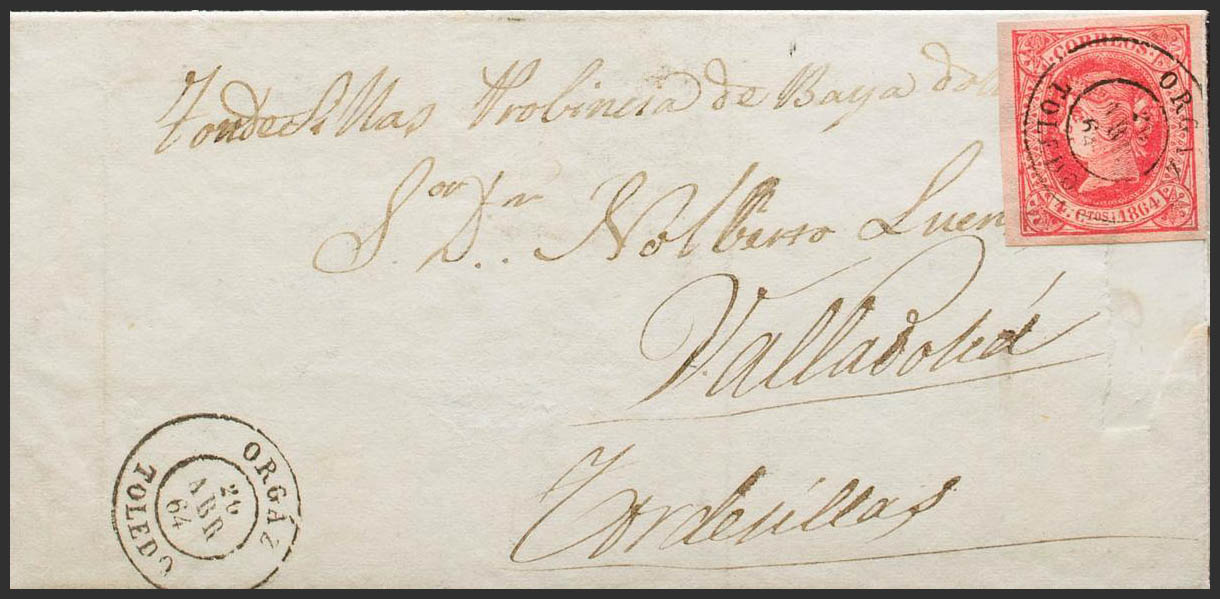 Tordesillas Probincia de Baya doli
Sor. Dn. Nolberto Luen
Valladolid
Tordesillas
CORREOS.
4. CTOS. 1864
ORGÁZ
TOLEDO
26
ABR
64
ORGÁZ
TOLEDO
26
ABR
64